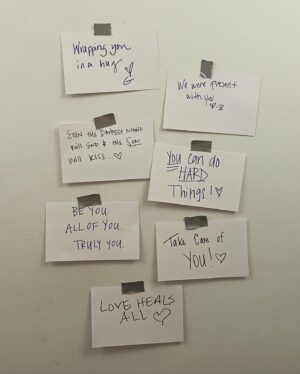 Wrapping you
in a hug
We were present
with you
EVEN the DARKEST NIGHT
Will END & the SUN
Will RISE...
YOU can do
HARD
Things!
BE YOU.
ALL OF YOU.
TRULY YOU.
Take Care of
YOU!
LOVE HEALS
ALL